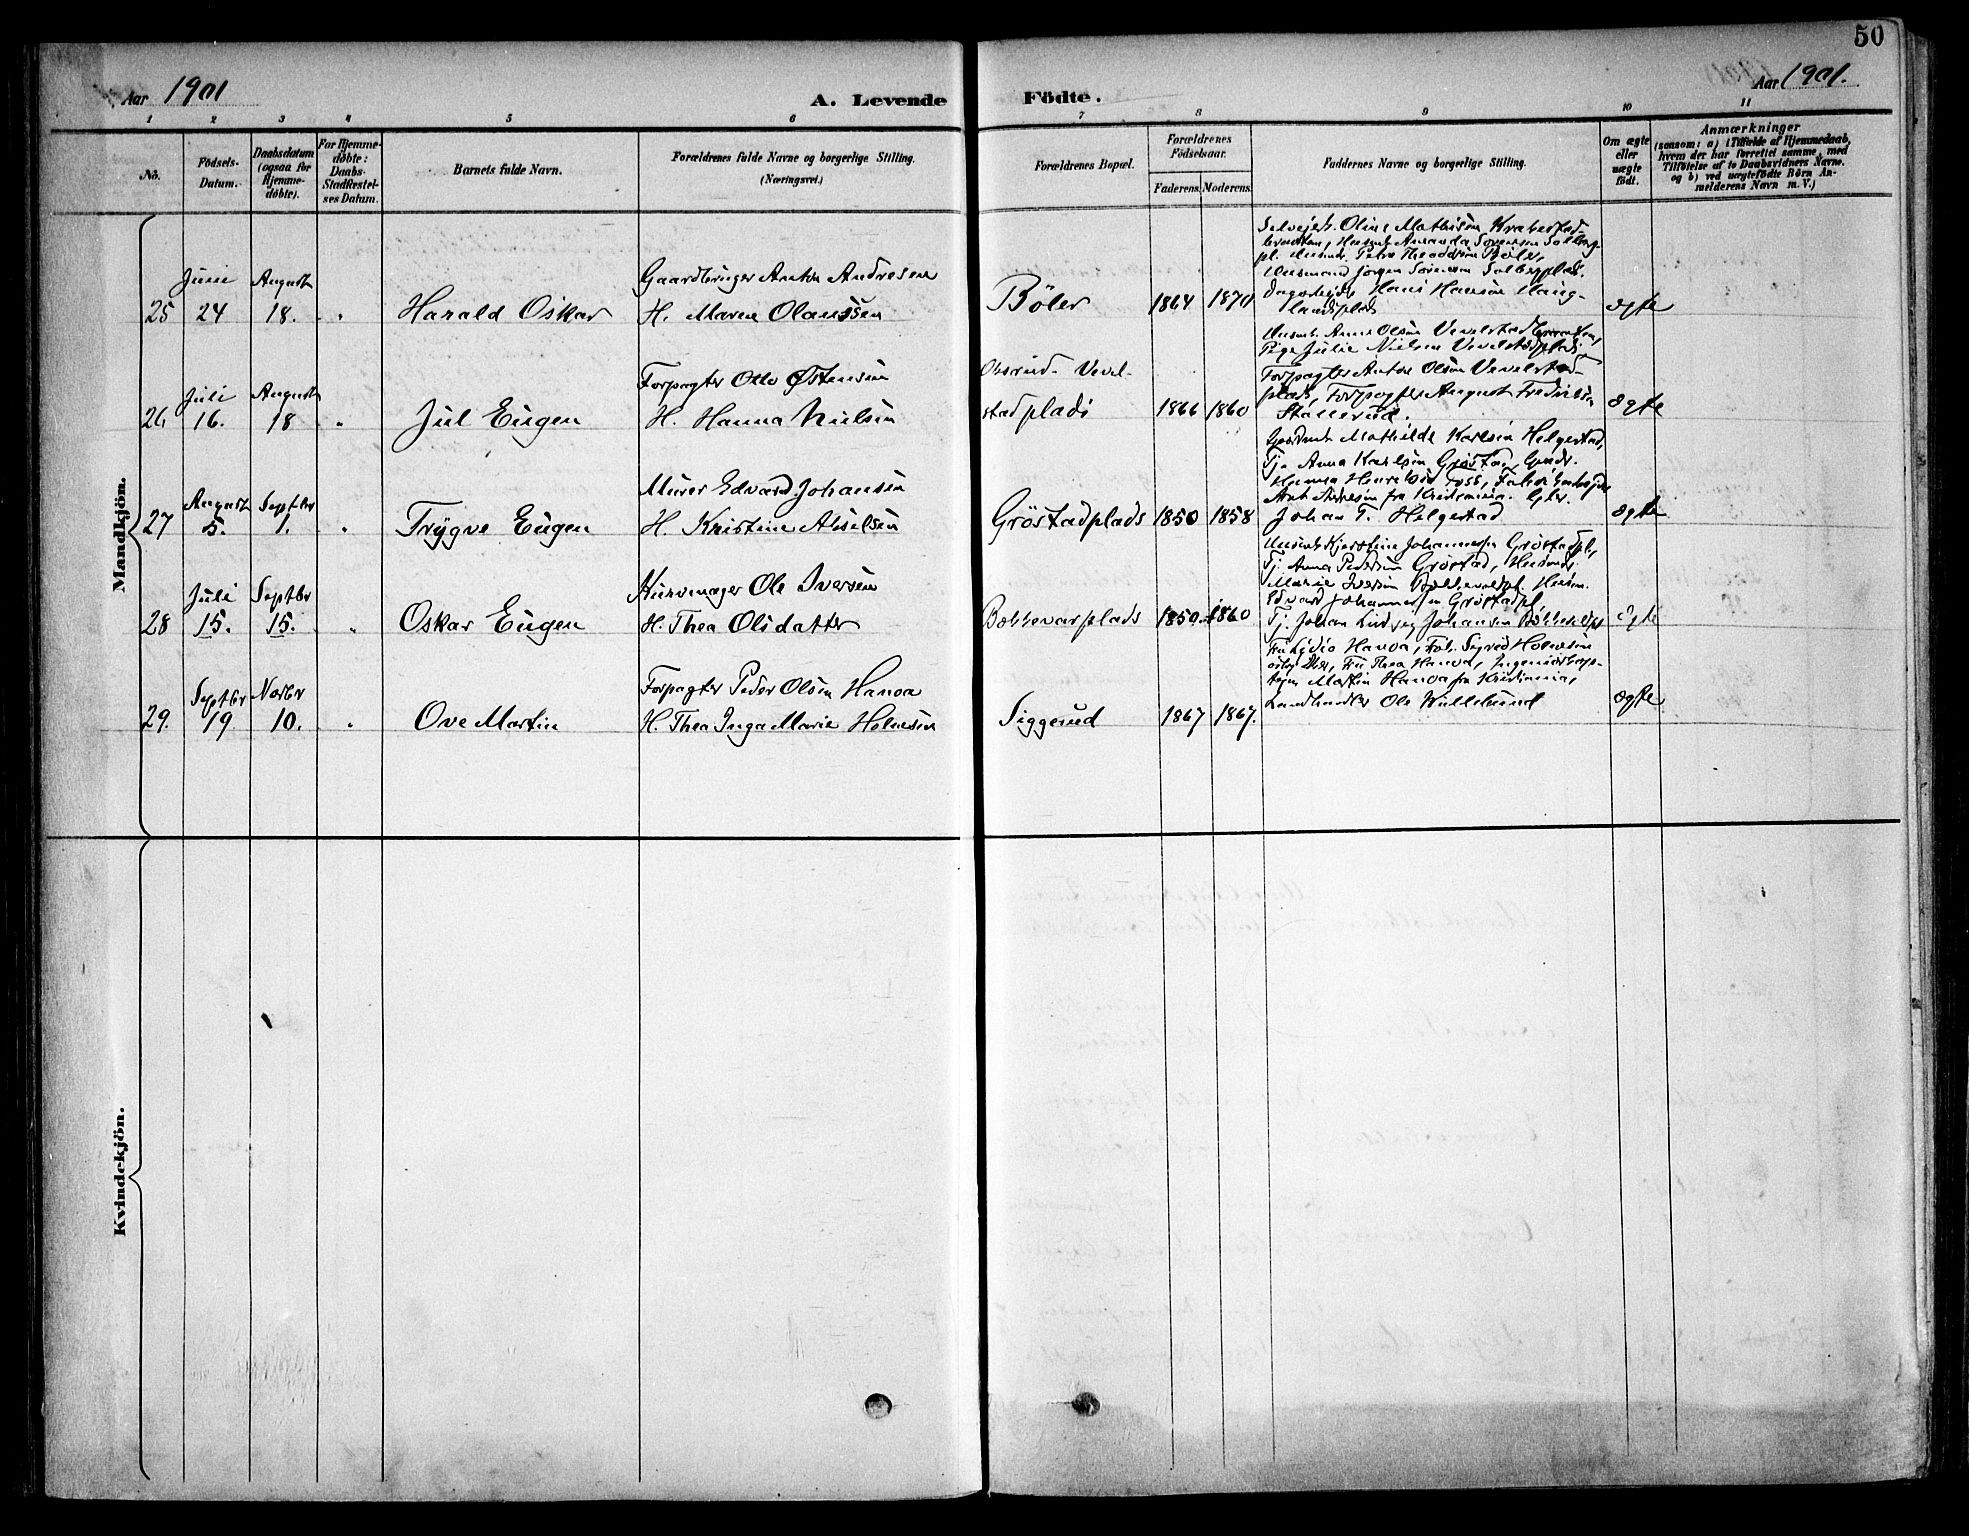 50
Aar 1901
A. Levende
Födte.
Aar 1901.
1 2 3 4 5 6 7 8 9 10 11
No.
Födsels-
Datum.
Daabsdatum
(ogsaa for
Hjemme-
döbte).
For Hjemme-
döbte:
Daabs-
Stadfæstel-
ses Datum.
Barnets fulde Navn.
Forældrenes fulde Navne og borgerlige Stilling.
(Næringsvei.)
Forældrenes Bopæl.
Forældrenes
Födselsaar.
Faderens. Moderens.
Faddernes Navne og borgerlige Stilling.
Om ægte
eller
uægte
födt.
Anmærkninger
(saasom: a) i Tilfælde af Hjemmedaab,
hvem der har forrettet samme, med
Tilföielse af to Daabsvidners Navne.
og b) ved uægtefödte Börn An-
melderens Navn m. V.)
Mandkjön.
25
Juni
24
August
18.
"
Harald Oskar
Gaardbruger Anton Andresen
H. Maren Olaussen
Böler
1864 1870
Selveiers. Oline Mathisen
Amanda Sörensen Solberg-
pl. Petra Theodorsen Böler,
Husmand Jörgen Sörensen Solbergplads.
Hans Hansen Haug-
landsplads
ægte
26
Juli
16.
August
18
"
Jul Eugen
Forpagter Otto Østensen
H. Hanna Nielsen
Vevel-
stadplads
1866 1860
Anne Olsen
Pige Julie Nielsen Vevelstadplads
Forpagter Anton Olsen Vevelstad-
plads, Forpagter August Fredriksen
Stallerud.
ægte
27
August
5.
Septbr
1.
"
Trygve Eugen
Murer Edvard Johansen
H. Kristine Akselsen
Gröstadplads
1850 1858
Mathilde Karlsen Helgestad,
Tj. Anna Karlsen Gröstad,
fra Kristiania.
Johan T. Helgestad
ægte
28
Juli
15.
Septbr
15.
"
Oskar Eugen
Kurvmager Ole Iversen
H. Thea Olsdatter
Bækkevarplads
1850 1860
Kjerstine Johannesen Gröstadpl.,
Tj. Anna Pedersen Gröstad,
Marie Iversen
Edvard Johannesen Gröstadpl
Tj. Johan Ludvig Johansen
ægte
29.
Septbr
19.
Novbr
10.
"
Ove Martin
Forpagter Peder Olsen Hanoa
H. Thea Inga Marie Holmsen
Siggerud
1867 1867.
Hanoa, Sigrid Holmsen
Fru Thea Hanoa,
Martin Hanoa fra Kristiania,
Landhandler Ole
ægte
Kvindekjön.